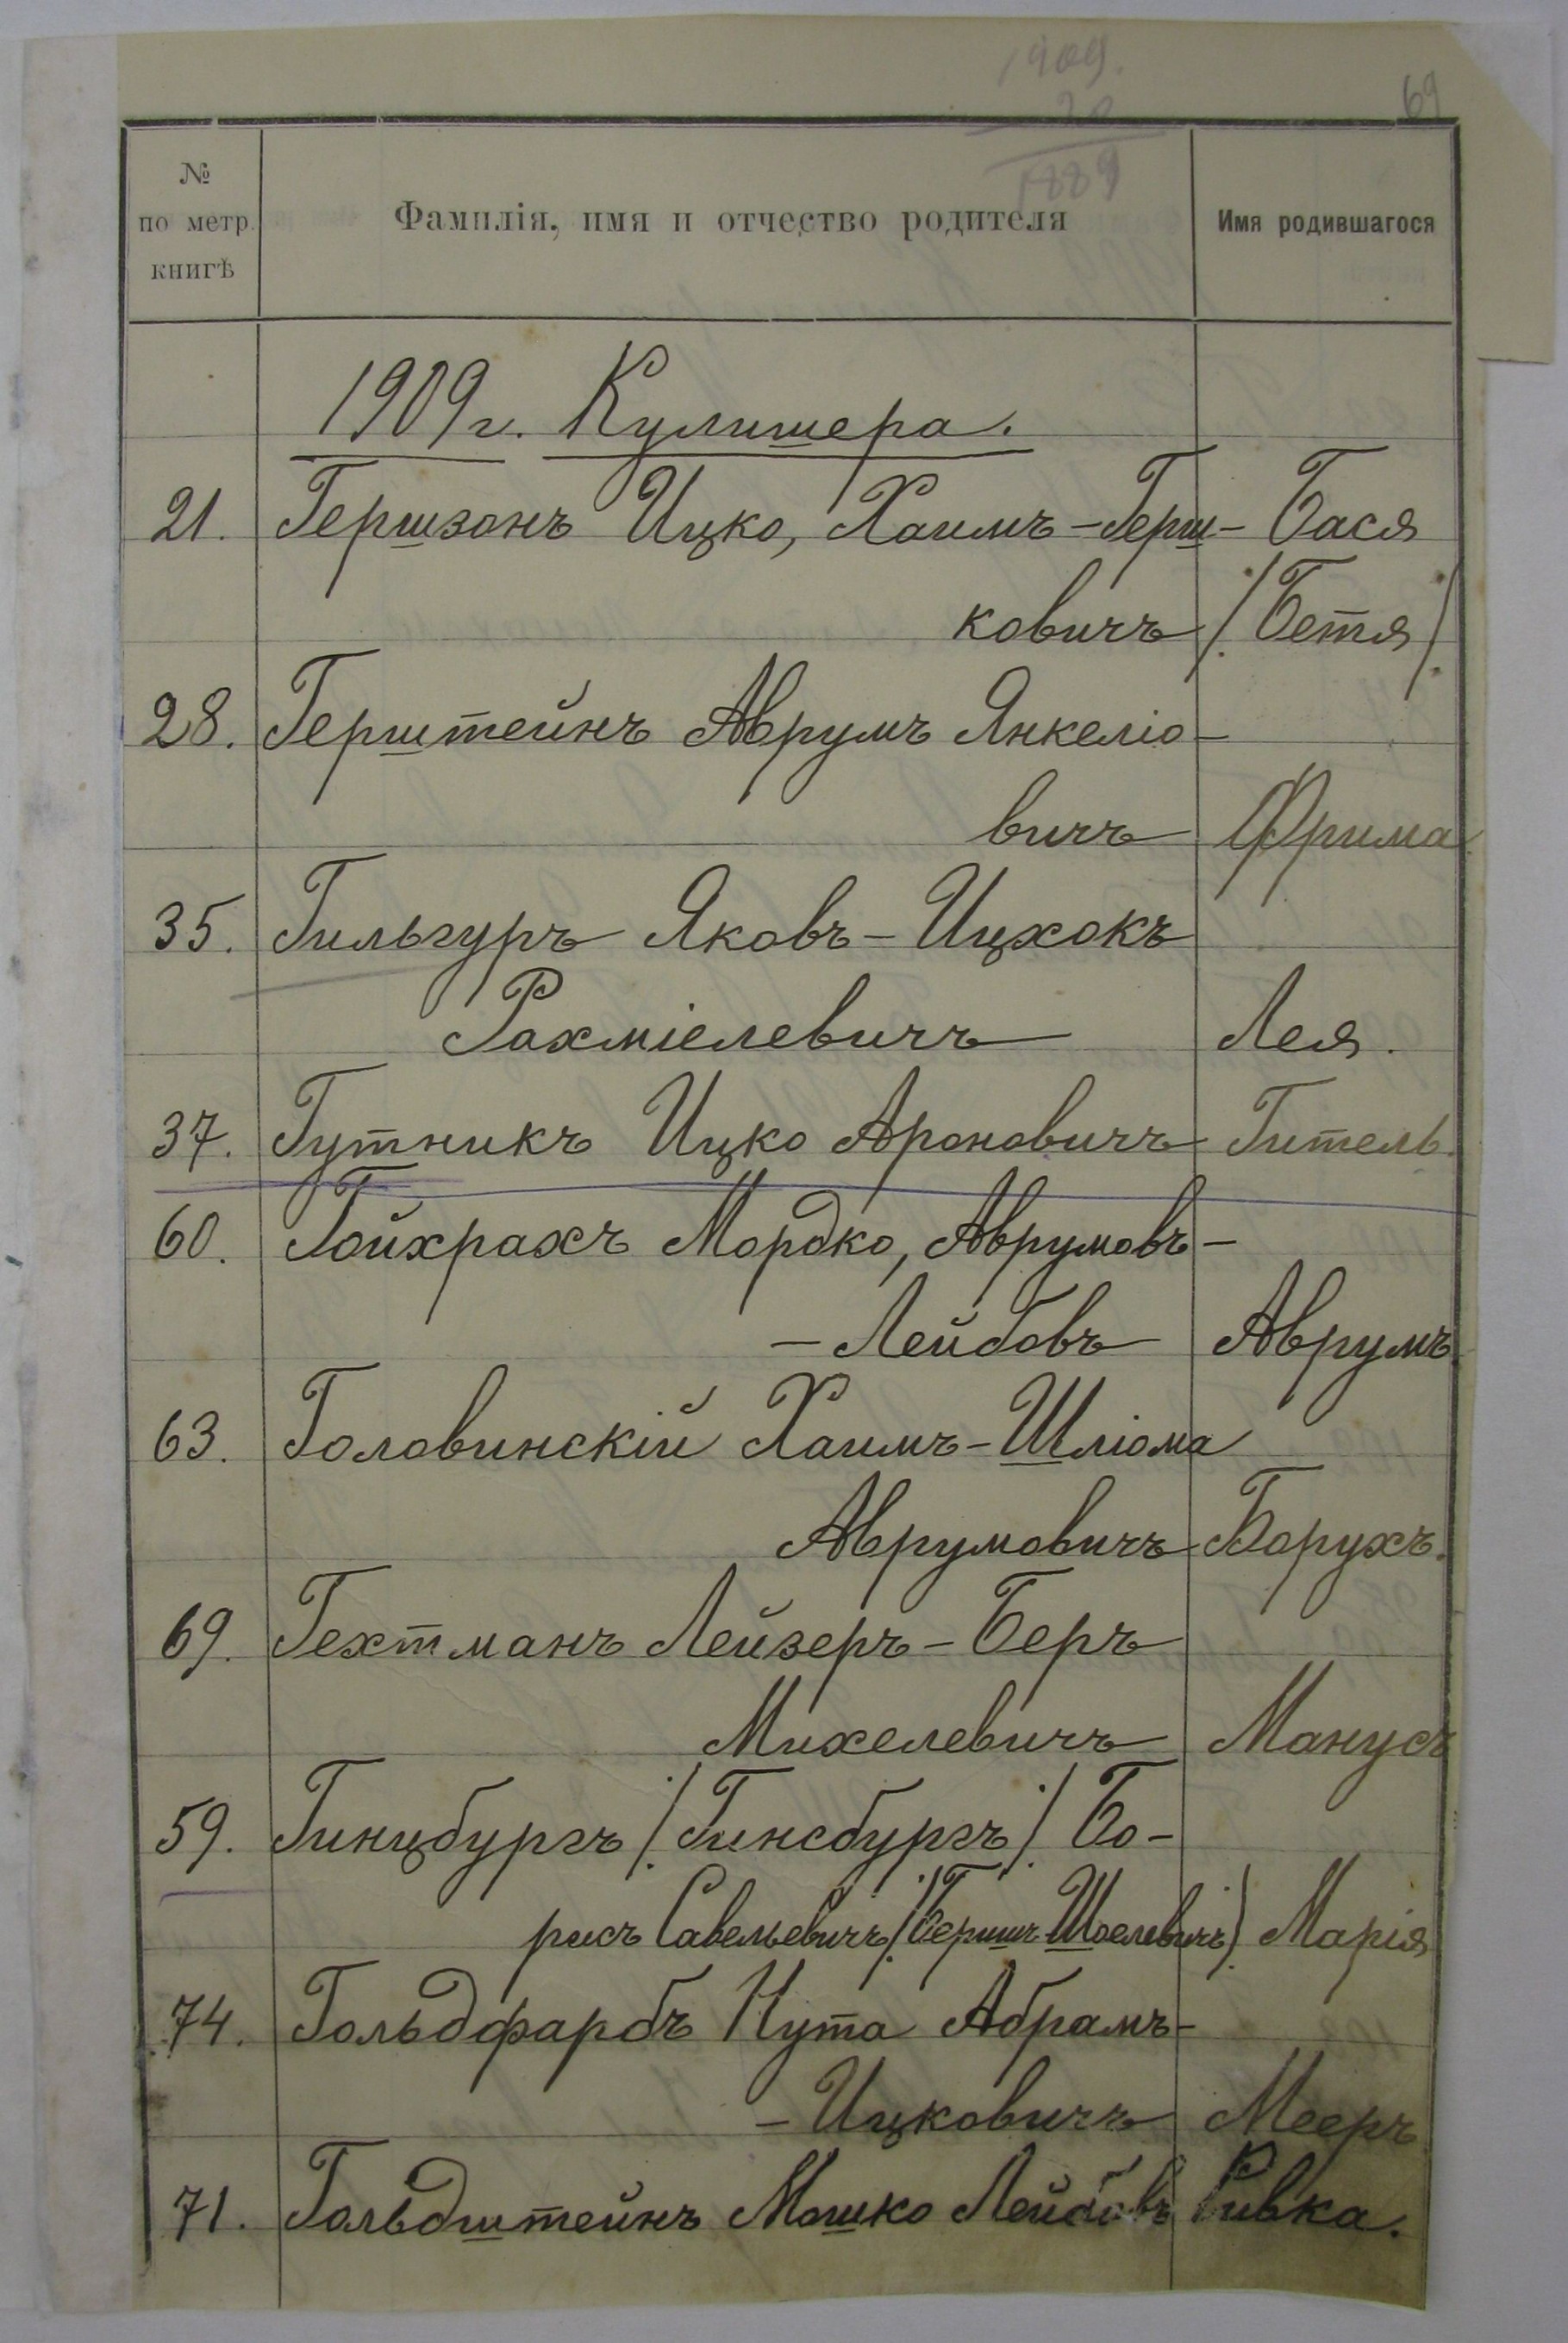 1909.
20
1889
69
№
по метр.
книгѣ
Фамилія, имя и отчество родителя
Имя родившагося
1909 г. Кулишера.
21. Гершзонъ Ицко, Хаимъ-Герш- Бася
ковичъ /Бетя/
28. Герштейнъ Аврумъ Янкеліо-
вичъ Фрима
35. Гильгуръ Яковъ-Ицхокъ
Рахміелевичъ Лея.
37. Гутникъ Ицко Ароновичъ Гитель.
60. Гойхрахъ Мордко, Аврумовъ-
-Лейбовъ Аврумъ
63. Головинскій Хаимъ-Шліома
Аврумовичъ Борухъ.
69. Гехтманъ Лейзеръ-Беръ
Михелевичъ Манусъ
59. Гинцбургъ /Гинсбургъ/ Бо-
рисъ Савельевичъ /Беришъ Шоелевичъ/ Марія
74. Гольдфарбъ Нута Абрамъ-
-Ицковичъ Мееръ
71. Гольдштейнъ Мошко Лейбовъ Ривка.